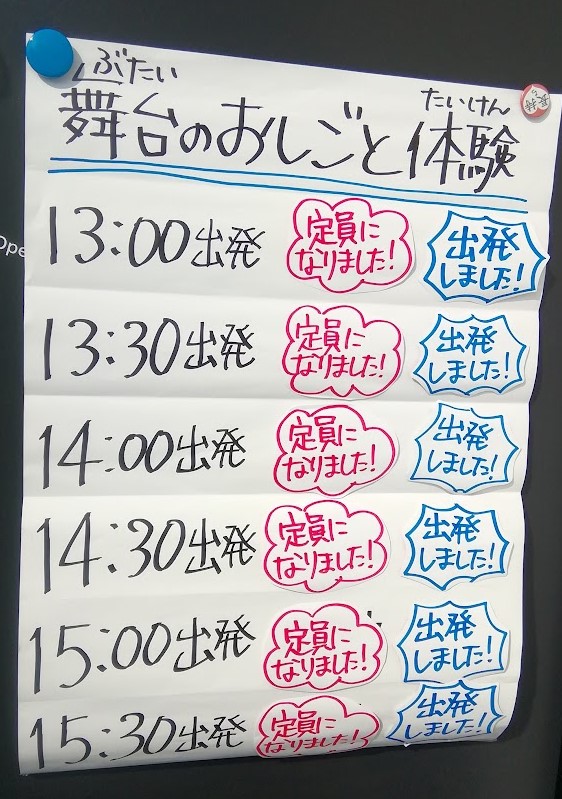 ぶたい
たいけん
舞台のおしごと体験
13:00出発 定員に なりました! 出発 しました!
13:30出発 定員に なりました! 出発 しました!
14:00出発 定員に なりました! 出発 しました!
14:30出発 定員に なりました! 出発 しました!
15:00出発 定員に なりました! 出発 しました!
15:30出発 定員に なりました! 出発 しました!
Ope